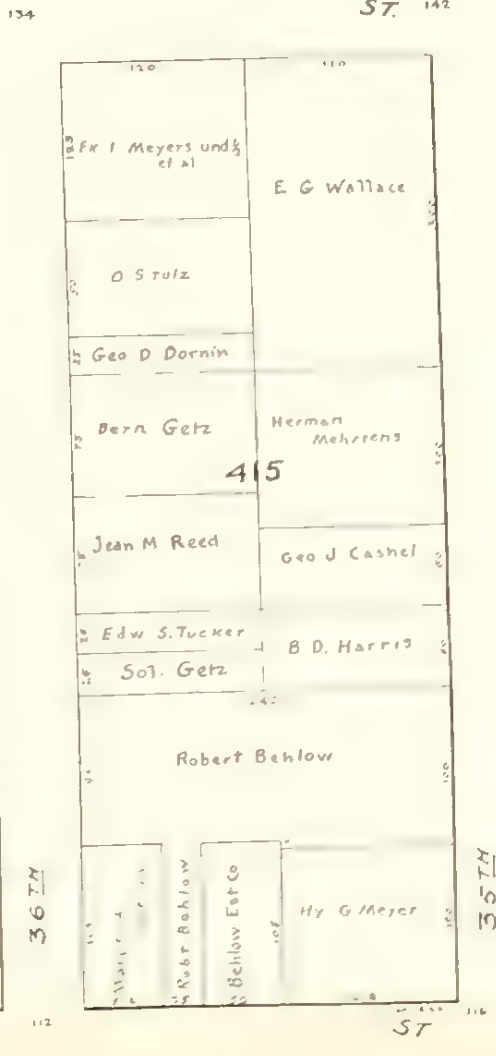 134
ST. 142
120
110
Fk I Meyers und ½
et al
E G Wallace
O Stulz
Geo D Dornin
Bern Getz
Herman
Mehrtens
415
Jean M Reed
Geo J Cashel
Edw S. Tucker
B D. Harris
Sol. Getz
Robert Behlow
36TH
35TH
Robt Behlow
Behlow Est Co
Hy G Meyer
112
ST